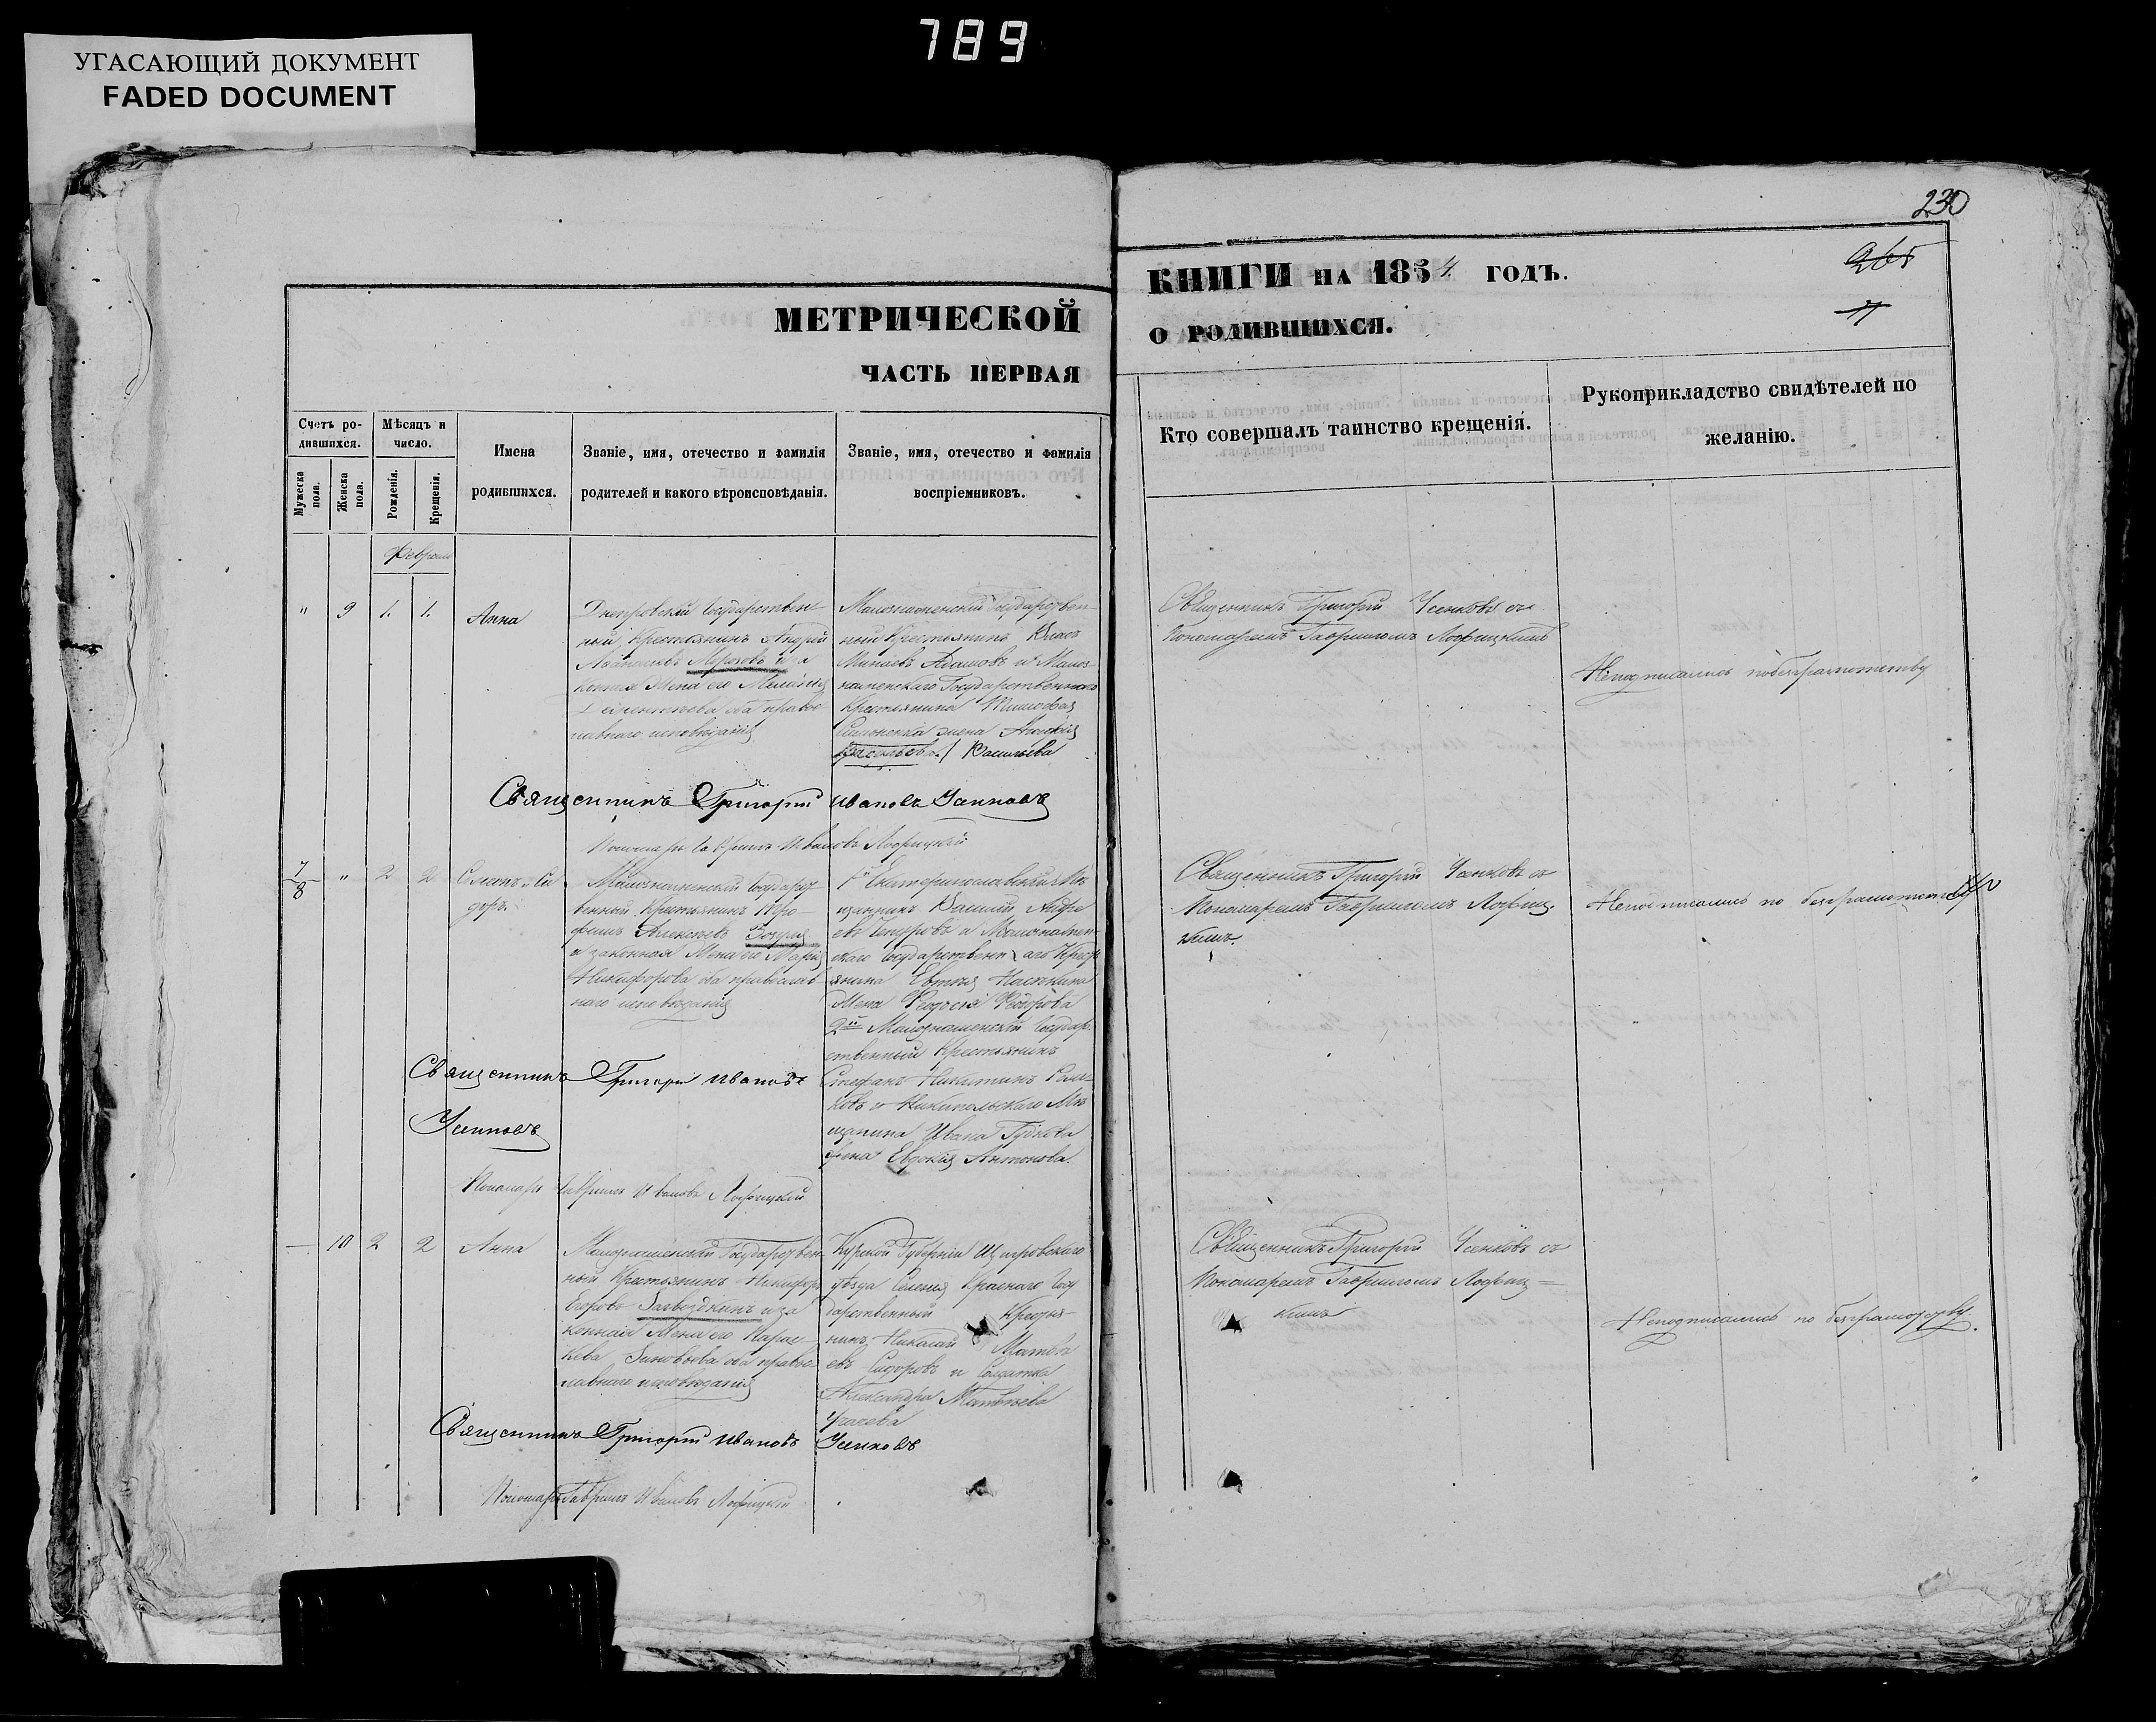 789
УГАСАЮЩИЙ ДОКУМЕНТ
FADED DOCUMENT
230
МЕТРИЧЕСКОЙ
ЧАСТЬ ПЕРВАЯ
КНИГИ НА 1854 ГОДЪ.
265
О РОДИВШИХСЯ.
Счетъ ро-
дившихся.
Мужеска пола.
Женска пола.
Мѣсяцъ и
число.
Рожденія.
Крещенія.
Имена
родившихся.
Званіе, имя, отечество и фамилія
родителей и какого вѣроисповѣданія.
Званіе, имя, отечество и фамилія
воспріемниковъ.
Кто совершалъ таинство крещенія.
Рукоприкладство свидѣтелей по
желанію.
Февраль
" 9 1. 1. Анна
Днепровскій Государствен-
ный крестьянинъ Андрей
Морозовъ и за
конная Жена его
оба правос
лавнаго исповѣданія
Малознаменскій Государствен-
ный Крестьянинъ Власъ
Минаевъ Адамовъ и Малоз-
наменскаго Государственнаго
Крестьянина Тимофея
жена
Васильева
Священникъ Григорій Усенковъ съ
Пономаремъ Гавріиломъ Лофицкимъ
Неподписались по безграмотству
Священникъ Григорій Ивановъ Усенковъ
Пономарь Гавріилъ Ивановъ Лофицкій
7 8 " 2 2 Симонъ и Си
доръ
Малознаменскій Государст
венный Крестьянинъ Тро-
фимъ Алексѣевъ
и законная Жена его Марія
Никифорова оба православ
наго исповѣданія
1й Екатеринославскій Мѣ
щанинъ Василій Андре
евъ и Малознамен-
скаго Государственнаго Крест
янина Евтихія
Жена Федосія Федорова
2й Малознаменскій Государ.
ственный Крестьянинъ
Стефанъ Никитинъ
и Никопольскаго Мѣ
щанина Ивана Гудкова
Жена Евдокія Антонова.
Священникъ Григорій Усенковъ съ
Пономаремъ Гавріиломъ Лофиц-
кимъ.
Неподписались по безграмотству
Священникъ Григорій Ивановъ
Усенковъ
Пономарь Гавріилъ Ивановъ Лофицкій
— 10 2 2 Анна
Малознаменскій Государствен
ный Крестьянинъ Никифоръ
Егоровъ и за
конная Жена его Парас
кева Зиновьева оба правос
лавнаго исповѣданія
Курской Губерніи Щигровскаго
уѣзда Селенія Краснаго Госу
дарственный Крестья
нинъ Николай Матвѣ
евъ Сидоровъ и Солдатка
Александра Матвѣева
Священникъ Григорій Усенковъ съ
Пономаремъ Гавріиломъ Лофиц=
кимъ
Неподписались по безграмотству.
Священникъ Григорій Ивановъ Усенковъ
Пономарь Гавріилъ Ивановъ Лофицкій